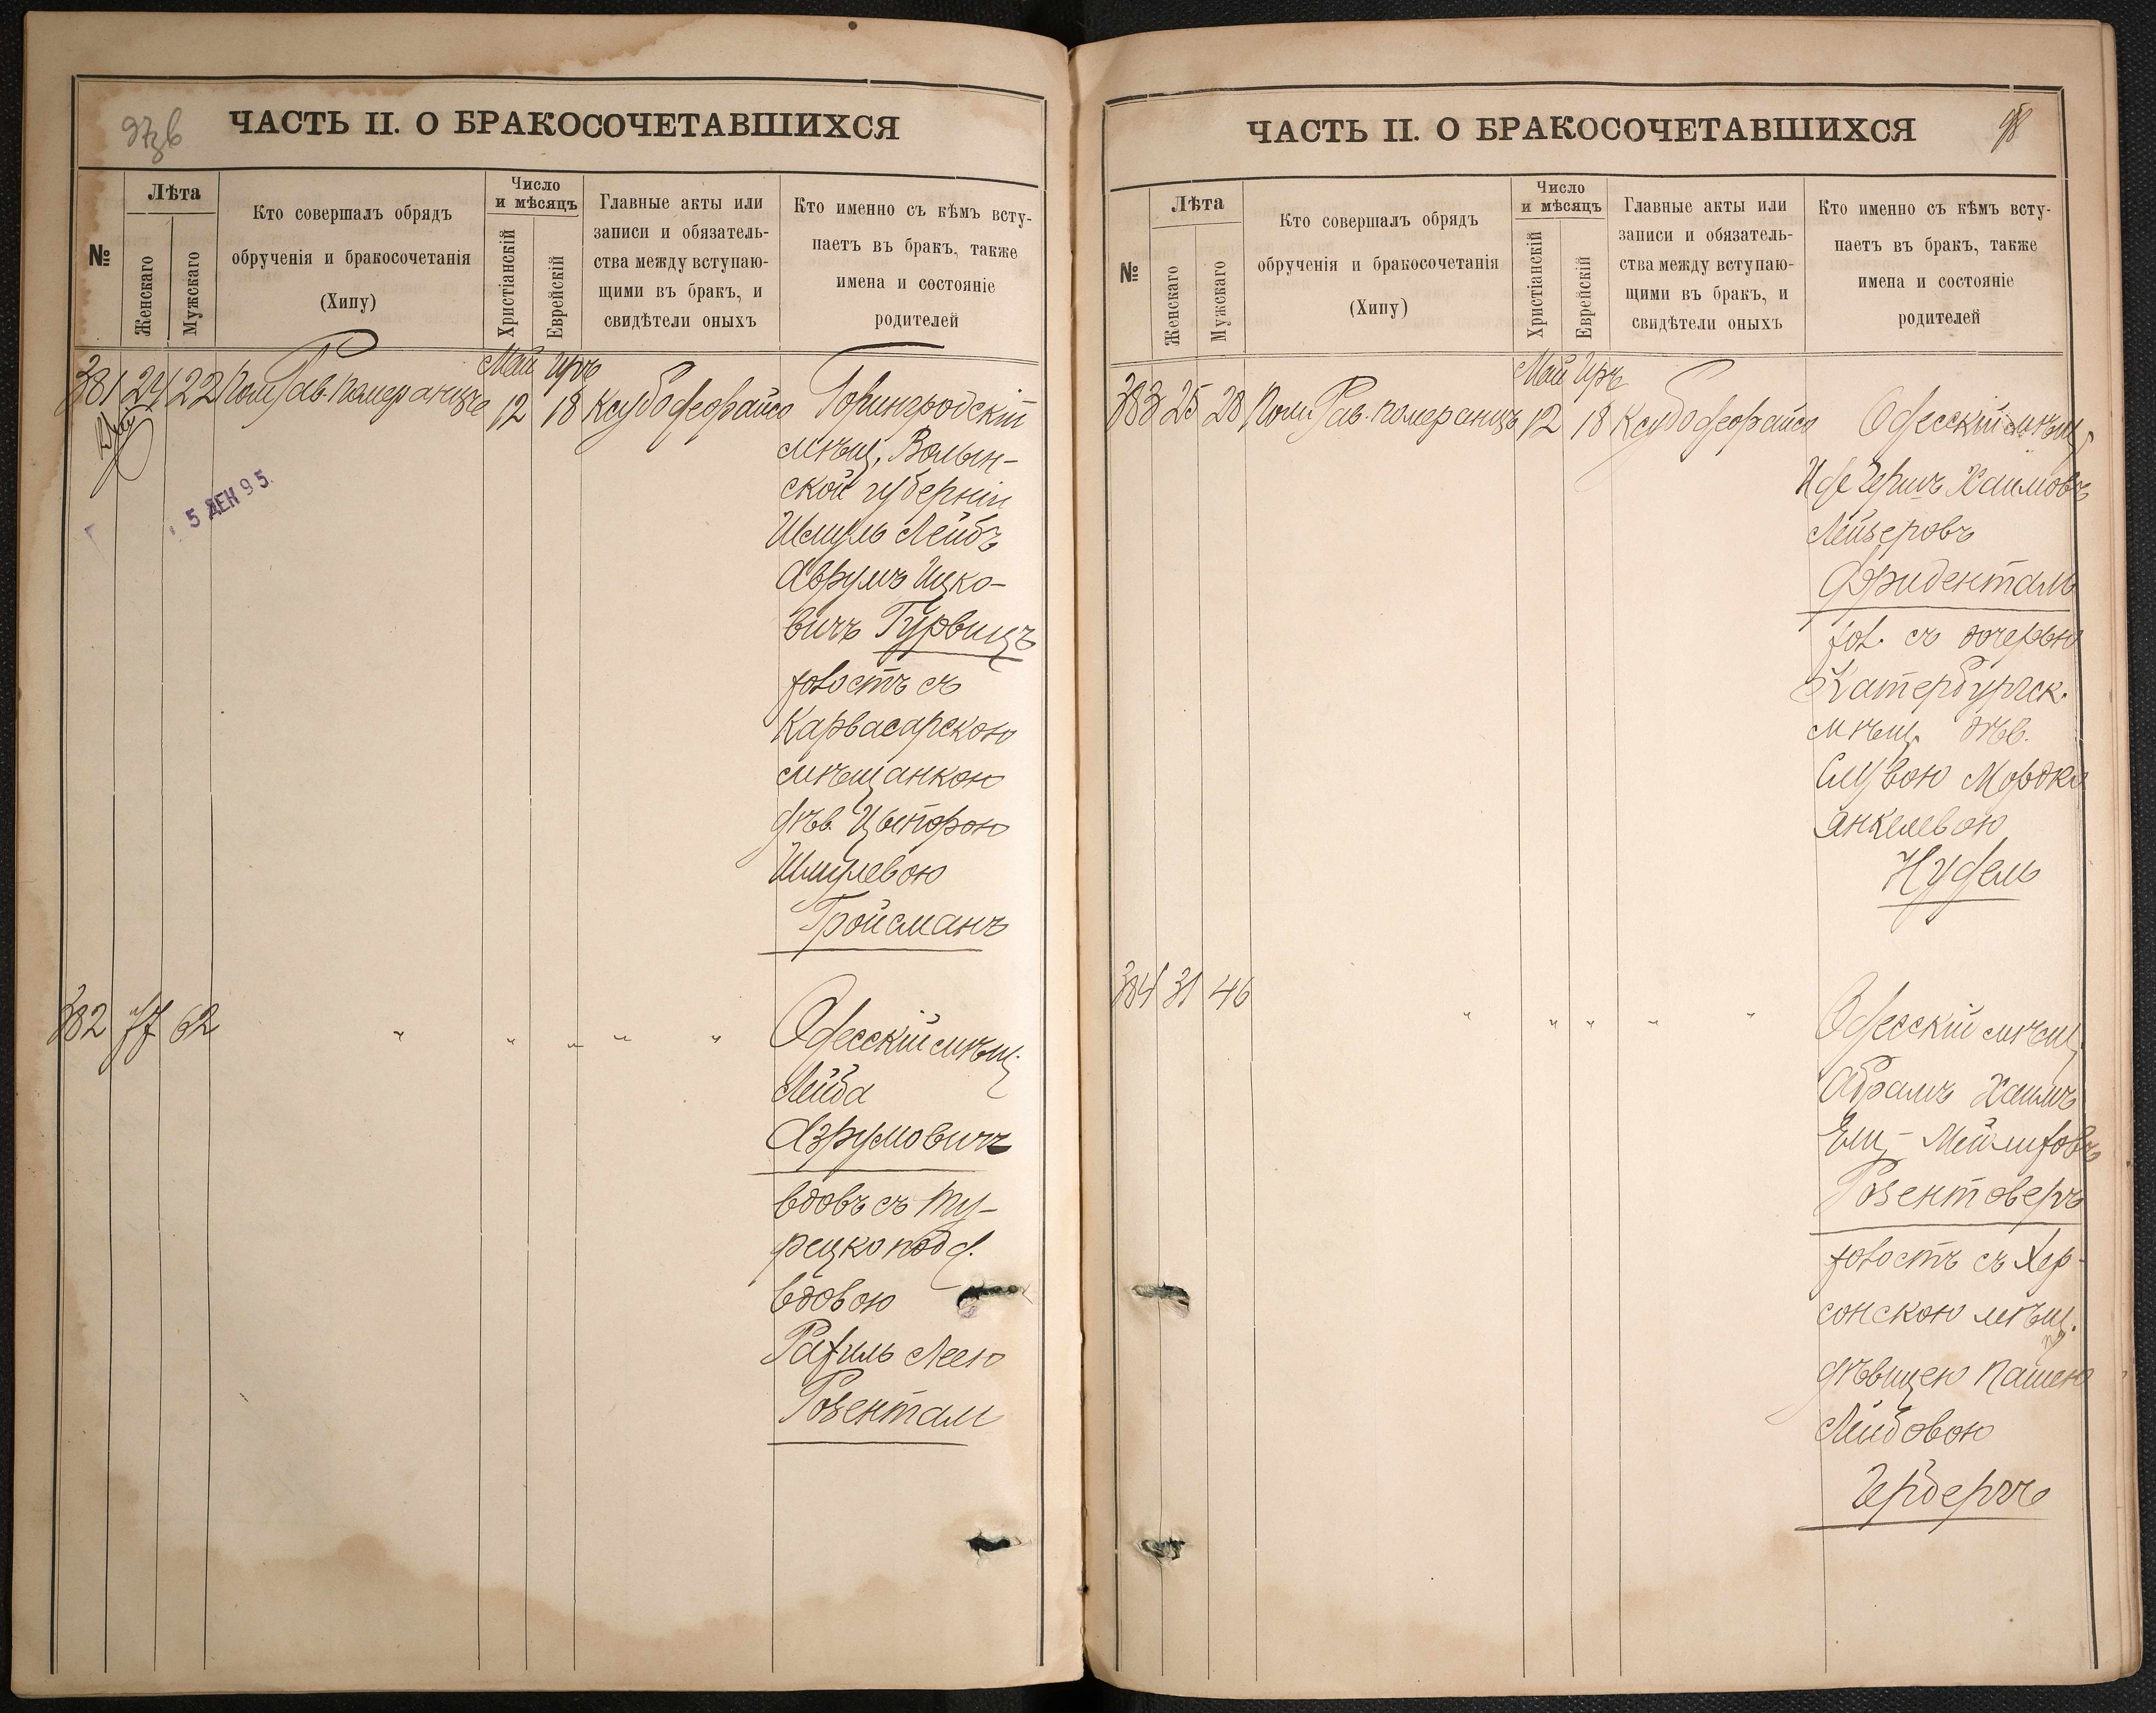 ЧАСТЬ II. О БРАКОСОЧЕТАВШИХСЯ
№
Лѣта
Женскаго
Мужскаго
Кто совершалъ обрядъ
обрученія и бракосочетанія
(Хипу)
Число
и мѣсяцъ
Христіанскій
Еврейскій
Главные акты или
записи и обязатель-
ства между вступаю-
щими въ бракъ, и
свидѣтели оныхъ
Кто именно съ кѣмъ всту-
паетъ въ бракъ, также
имена и состояніе
родителей
Май Иръ
381 24 22 Пом. Рав. Померанцъ 12 18 Ксубо
Горингродскій
мѣщ. Волын-
ской губерніи
Шмуль Лейбъ
Аврумъ Ицко-
вичъ Гурвицъ
холостъ съ
Карвасарскою
мѣщанкою
дѣв. Ципорою
Шмулевою
Гройсманъ
5 ДЕН 95.
382 77 62 " " " " "
Одесскій мѣщ.
Лейба
Азрумовичъ
вдовъ съ ту-
рецкопод.
вдовою
Рахиль Леею
Розентали
ЧАСТЬ II. О БРАКОСОЧЕТАВШИХСЯ
98
№
Лѣта
Женскаго
Мужскаго
Кто совершалъ обрядъ
обрученія и бракосочетанія
(Хипу)
Число
и мѣсяцъ
Христіанскій
Еврейскій
Главные акты или
записи и обязатель-
ства между вступаю-
щими въ бракъ, и
свидѣтели оныхъ
Кто именно съ кѣмъ всту-
паетъ въ бракъ, также
имена и состояніе
родителей
Май Иръ
383 25 28 Пом. Рав. Померанцъ 12 18 Ксубо
Одесскій мѣщ.
Иде Гершъ Хаимовъ
Лейзеровъ
Фриденталь
хол. съ дочерью
Катербургск.
мѣщ. дѣв.
Слувою Мордко
Янкелевою
Нудель
384 31 46 " " " " "
Одесскій мѣщ.
Абрамъ Хаимъ
Розентоверъ
холостъ съ Хер-
сонскою мѣщ.
дѣвицею Пашею
Лейбовою
Герберъ